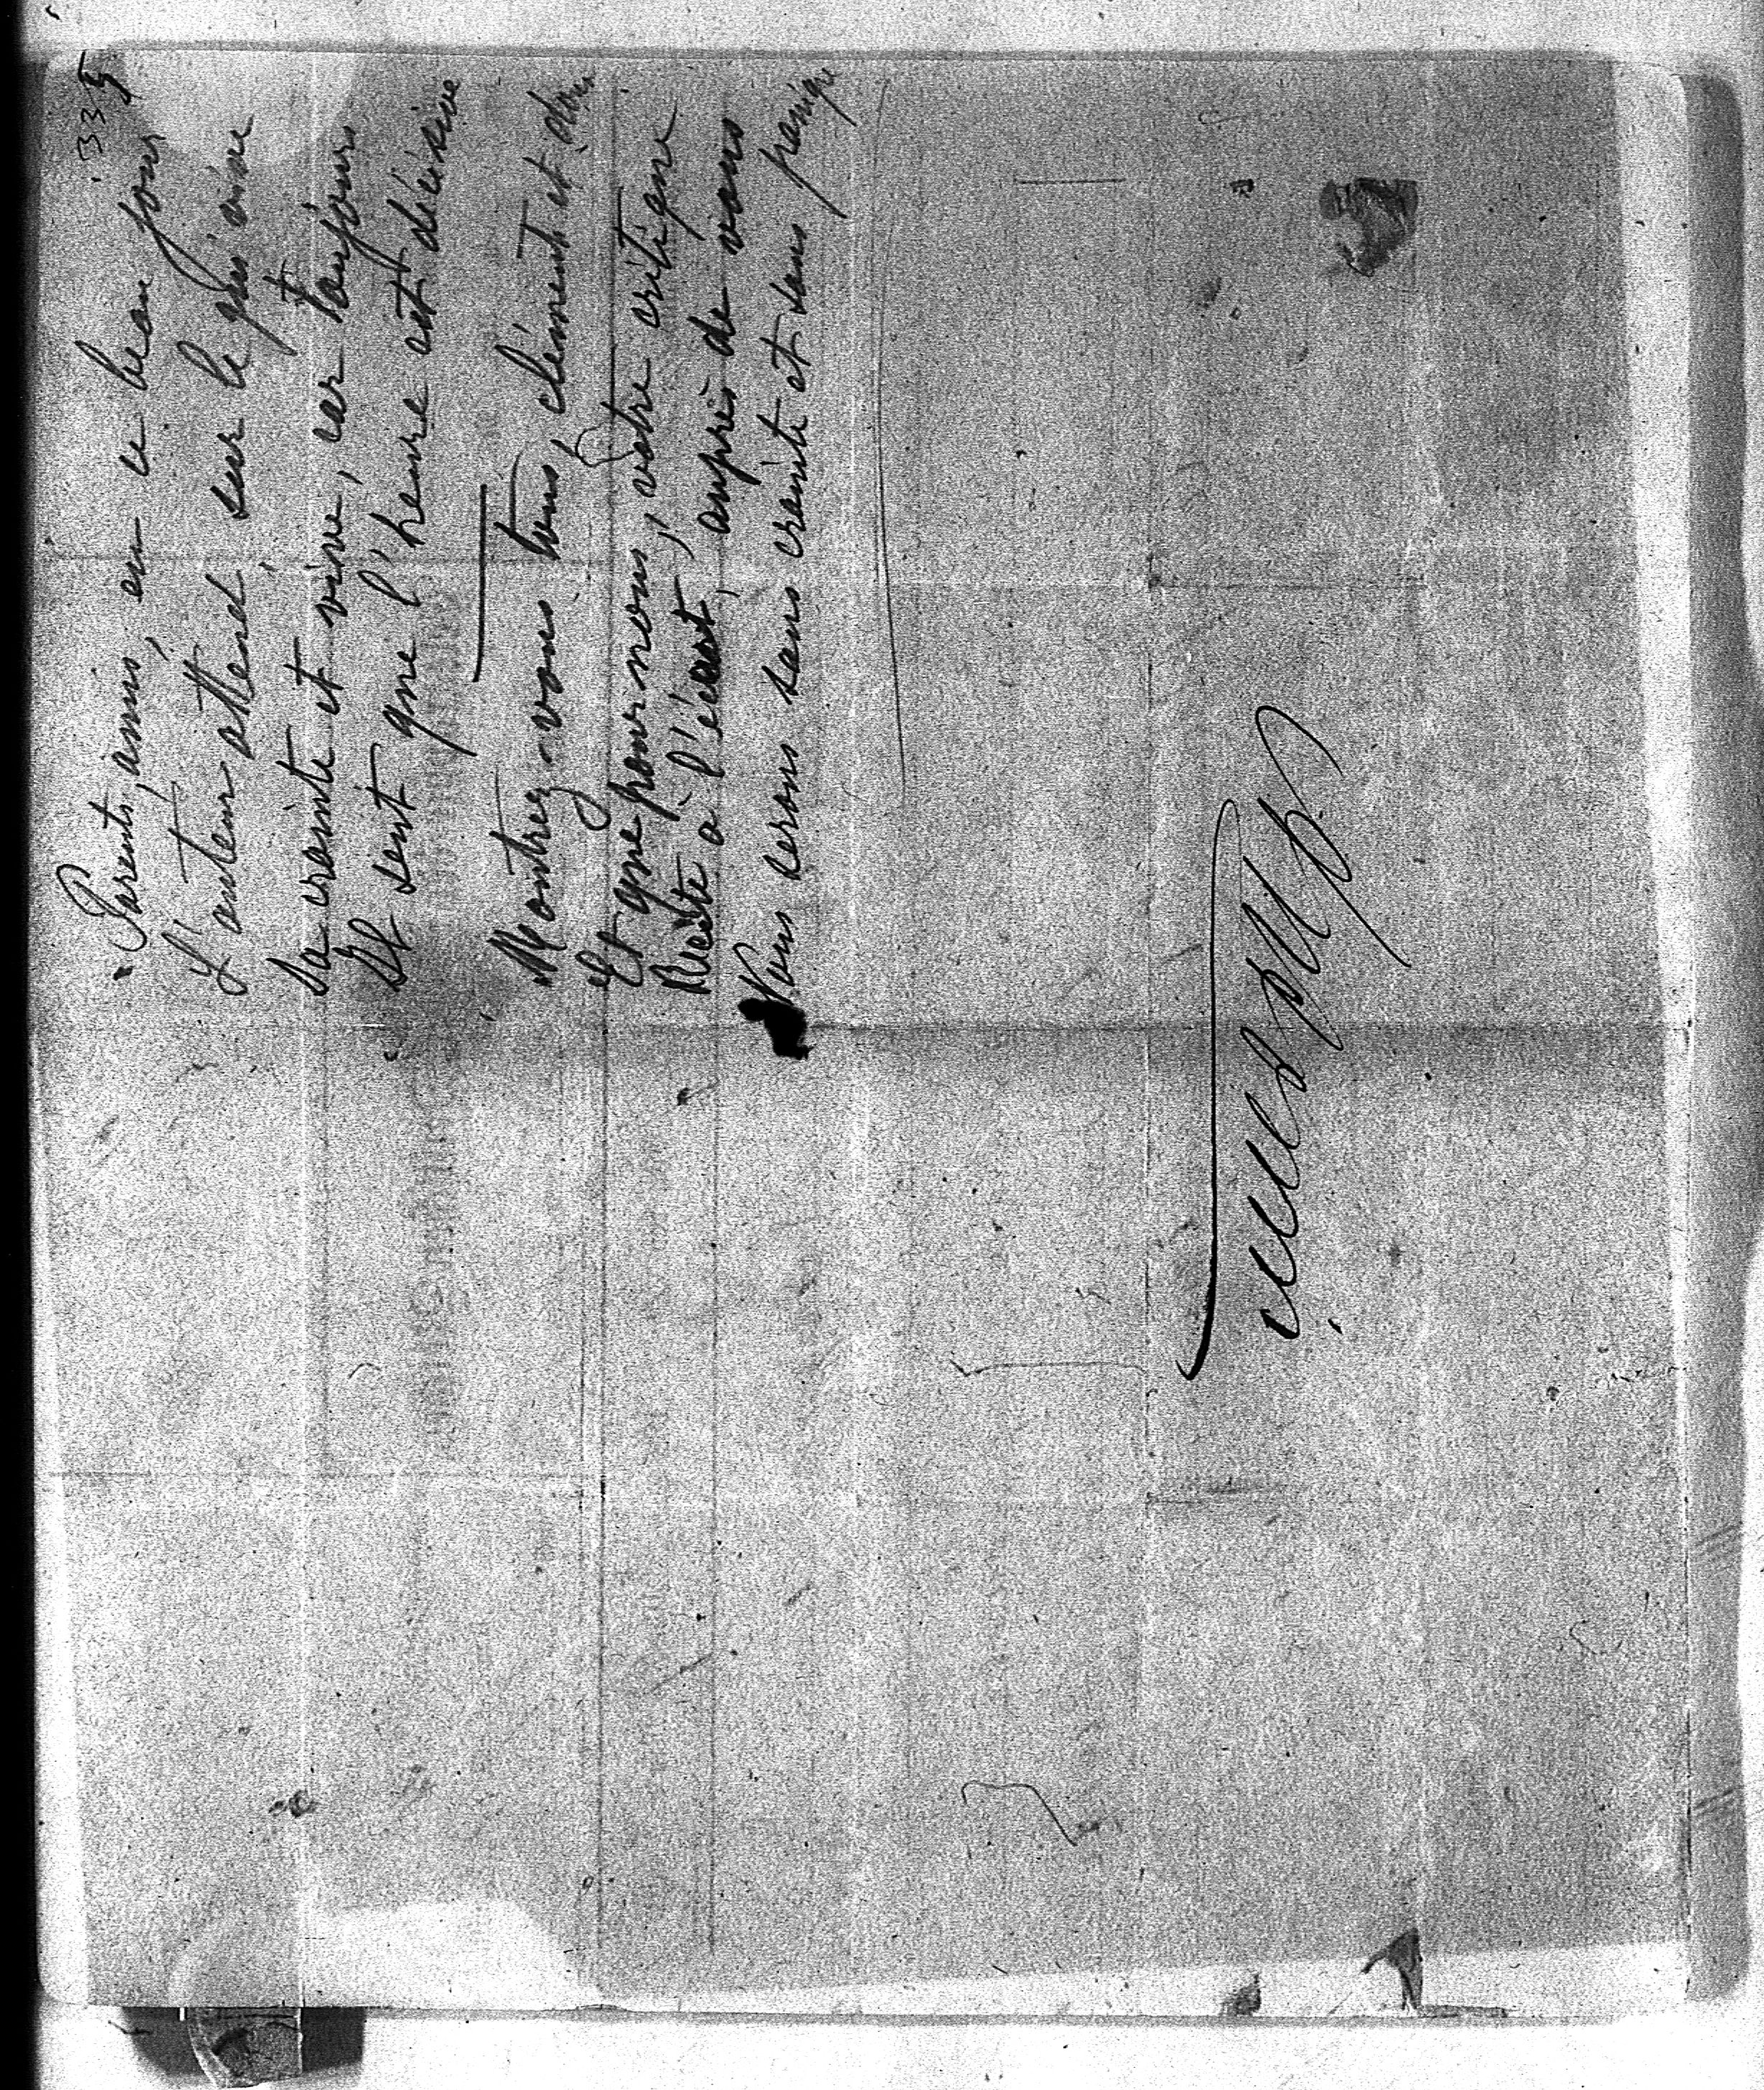 335
Parents, amis, en ce beau jour
L'auteur attend sur le qui vive
Sa crainte est vive, car toujours
Il sent que l'heure est décisive
Montrez-vous tous, clément et doux
Et que pour nous, votre critique
Reste à l'écart, auprès de vous
Nous serons sans crainte et sans panique